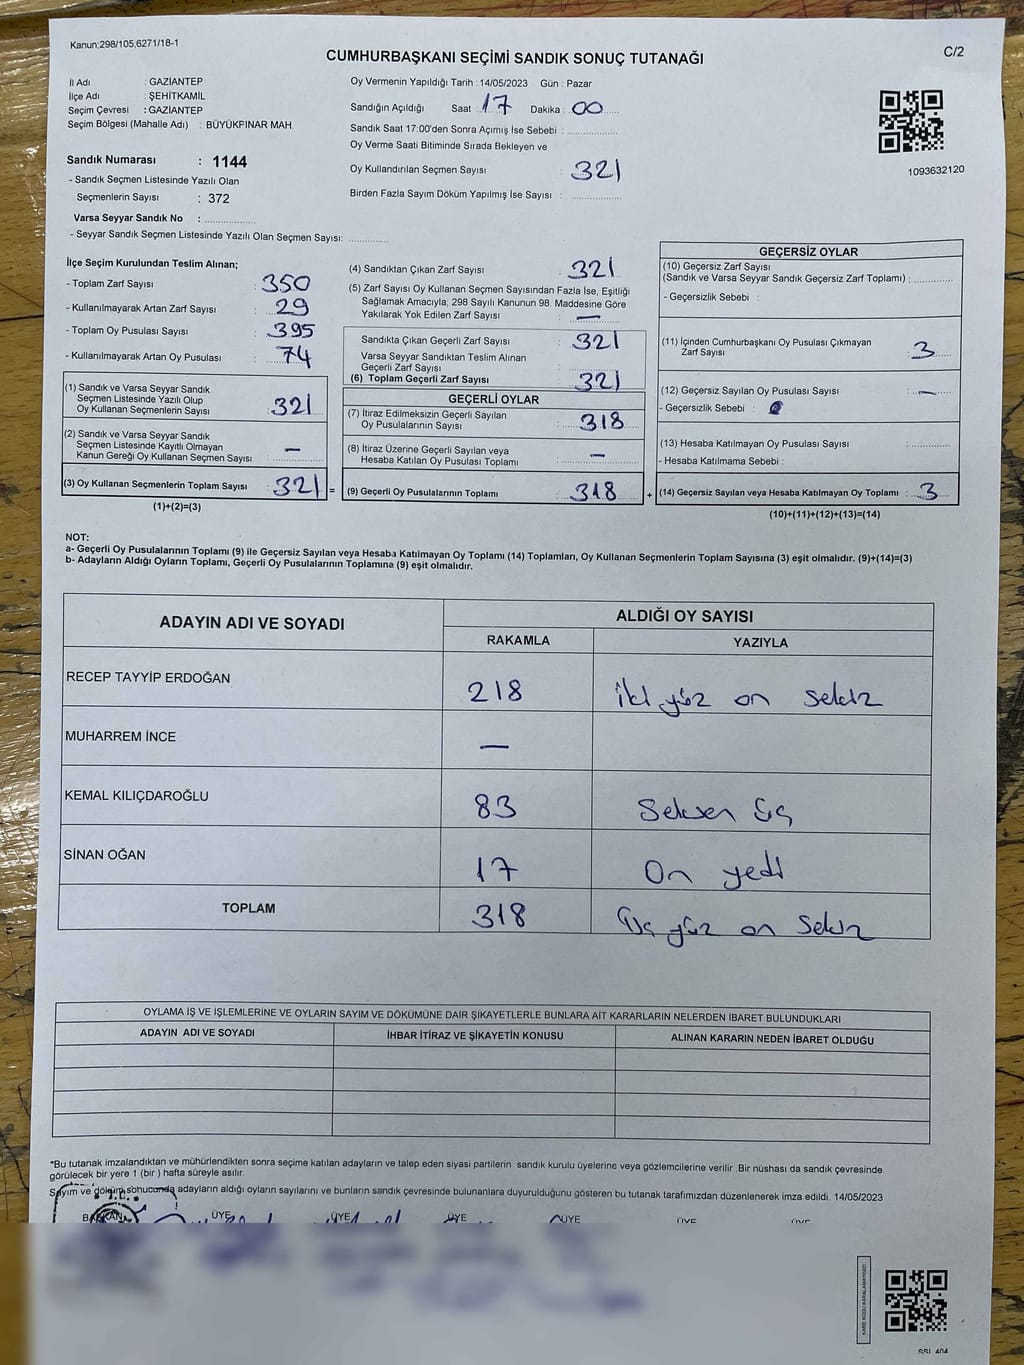 Kanun;298/105,6271/18-1
C/2
CUMHURBAŞKANI SEÇİMİ SANDIK SONUÇ TUTANAĞI
İl Adı : GAZİANTEP
İlçe Adı : ŞEHİTKAMİL
Seçim Çevresi : GAZİANTEP
Seçim Bölgesi (Mahalle Adı) : BÜYÜKPINAR MAH.
Oy Vermenin Yapıldığı Tarih : 14/05/2023 Gün : Pazar
Sandığın Açıldığı Saat 17 Dakika : 00
Sandık Saat 17:00'den Sonra Açımış İse Sebebi :
Oy Verme Saati Bitiminde Sırada Bekleyen ve
Oy Kullandırılan Seçmen Sayısı : 321
Birden Fazla Sayım Döküm Yapılmış İse Sayısı :
1093632120
Sandık Numarası : 1144
- Sandık Seçmen Listesinde Yazılı Olan
Seçmenlerin Sayısı : 372
Varsa Seyyar Sandık No :
- Seyyar Sandık Seçmen Listesinde Yazılı Olan Seçmen Sayısı:
İlçe Seçim Kurulundan Teslim Alınan;
- Toplam Zarf Sayısı : 350
- Kullanılmayarak Artan Zarf Sayısı : 29
- Toplam Oy Pusulası Sayısı : 395
- Kullanılmayarak Artan Oy Pusulası : 74
(1) Sandık ve Varsa Seyyar Sandık
Seçmen Listesinde Yazılı Olup
Oy Kullanan Seçmenlerin Sayısı : 321
(2) Sandık ve Varsa Seyyar Sandık
Seçmen Listesinde Kayıtlı Olmayan
Kanun Gereği Oy Kullanan Seçmen Sayısı : —
(3) Oy Kullanan Seçmenlerin Toplam Sayısı : 321 =
(1)+(2)=(3)
(4) Sandıktan Çıkan Zarf Sayısı : 321
(5) Zarf Sayısı Oy Kullanan Seçmen Sayısından Fazla İse, Eşitliği
Sağlamak Amacıyla; 298 Sayılı Kanunun 98. Maddesine Göre
Yakılarak Yok Edilen Zarf Sayısı : —
Sandıkta Çıkan Geçerli Zarf Sayısı : 321
Varsa Seyyar Sandıktan Teslim Alınan
Geçerli Zarf Sayısı :
(6) Toplam Geçerli Zarf Sayısı : 321
GEÇERLİ OYLAR
(7) İtiraz Edilmeksizin Geçerli Sayılan
Oy Pusulalarının Sayısı : 318
(8) İtiraz Üzerine Geçerli Sayılan veya
Hesaba Katılan Oy Pusulası Toplamı : —
(9) Geçerli Oy Pusulalarının Toplamı : 318 +
GEÇERSİZ OYLAR
(10) Geçersiz Zarf Sayısı
(Sandık ve Varsa Seyyar Sandık Geçersiz Zarf Toplamı) :
- Geçersizlik Sebebi :
(11) İçinden Cumhurbaşkanı Oy Pusulası Çıkmayan
Zarf Sayısı : 3
(12) Geçersiz Sayılan Oy Pusulası Sayısı : —
- Geçersizlik Sebebi :
(13) Hesaba Katılmayan Oy Pusulası Sayısı :
- Hesaba Katılmama Sebebi :
(14) Geçersiz Sayılan veya Hesaba Katılmayan Oy Toplamı : 3
(10)+(11)+(12)+(13)=(14)
NOT:
a- Geçerli Oy Pusulalarının Toplamı (9) ile Geçersiz Sayılan veya Hesaba Katılmayan Oy Toplamı (14) Toplamları, Oy Kullanan Seçmenlerin Toplam Sayısına (3) eşit olmalıdır. (9)+(14)=(3)
b- Adayların Aldığı Oyların Toplamı, Geçerli Oy Pusulalarının Toplamına (9) eşit olmalıdır.
ADAYIN ADI VE SOYADI
ALDIĞI OY SAYISI
RAKAMLA YAZIYLA
RECEP TAYYİP ERDOĞAN 218 İki yüz on sekiz
MUHARREM İNCE —
KEMAL KILIÇDAROĞLU 83 Seksen üç
SİNAN OĞAN 17 On yedi
TOPLAM 318 Üç yüz on sekiz
OYLAMA İŞ VE İŞLEMLERİNE VE OYLARIN SAYIM VE DÖKÜMÜNE DAİR ŞİKAYETLERLE BUNLARA AİT KARARLARIN NELERDEN İBARET BULUNDUKLARI
ADAYIN ADI VE SOYADI İHBAR İTİRAZ VE ŞİKAYETİN KONUSU ALINAN KARARIN NEDEN İBARET OLDUĞU
*Bu tutanak imzalandıktan ve mühürlendikten sonra seçime katılan adayların ve talep eden siyasi partilerin sandık kurulu üyelerine veya gözlemcilerine verilir. Bir nüshası da sandık çevresinde
görülecek bir yere 1 (bir ) hafta süreyle asılır.
Sayım ve döküm sonucunda adayların aldığı oyların sayılarını ve bunların sandık çevresinde bulunanlara duyurulduğunu gösteren bu tutanak tarafımızdan düzenlenerek imza edildi. 14/05/2023
T.C.
BAŞKAN ÜYE ÜYE ÜYE ÜYE ÜYE ÜYE